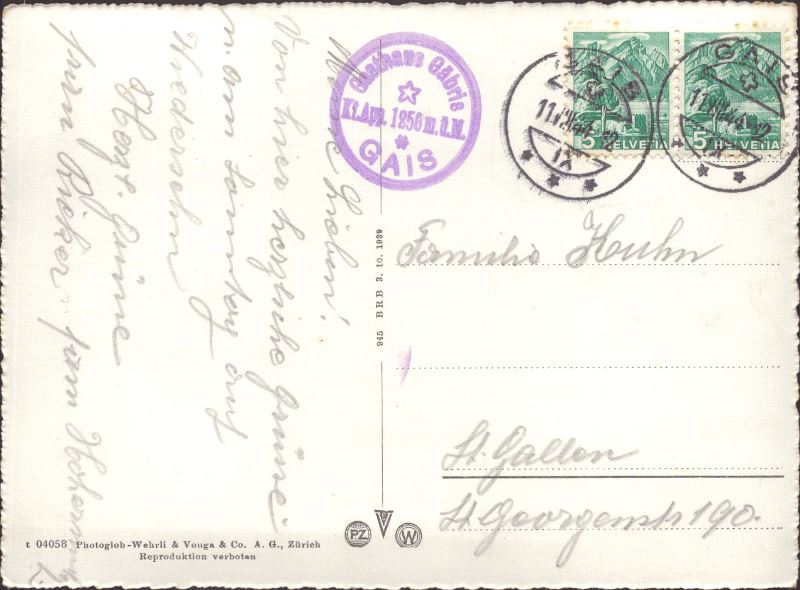 Meine Lieben!
Von hier herzliche Grüsse
mam Sonntag auf
Wiedersehn
Herzl. Grüsse
fam
Gasthaus Gäbris
Kt. App. 1250 m. ü. M.
GAIS
GAIS
11.
IX
5 HELVETIA
GAIS
11.
IX
5 HELVETIA
945 BRB 3. 10. 1939
Familie Huhn
St. Gallen
St. Georgenstr 190.
PZ
W
t 04058 Photoglob-Wehrli & Vouga & Co. A. G., Zürich
Reproduktion verboten